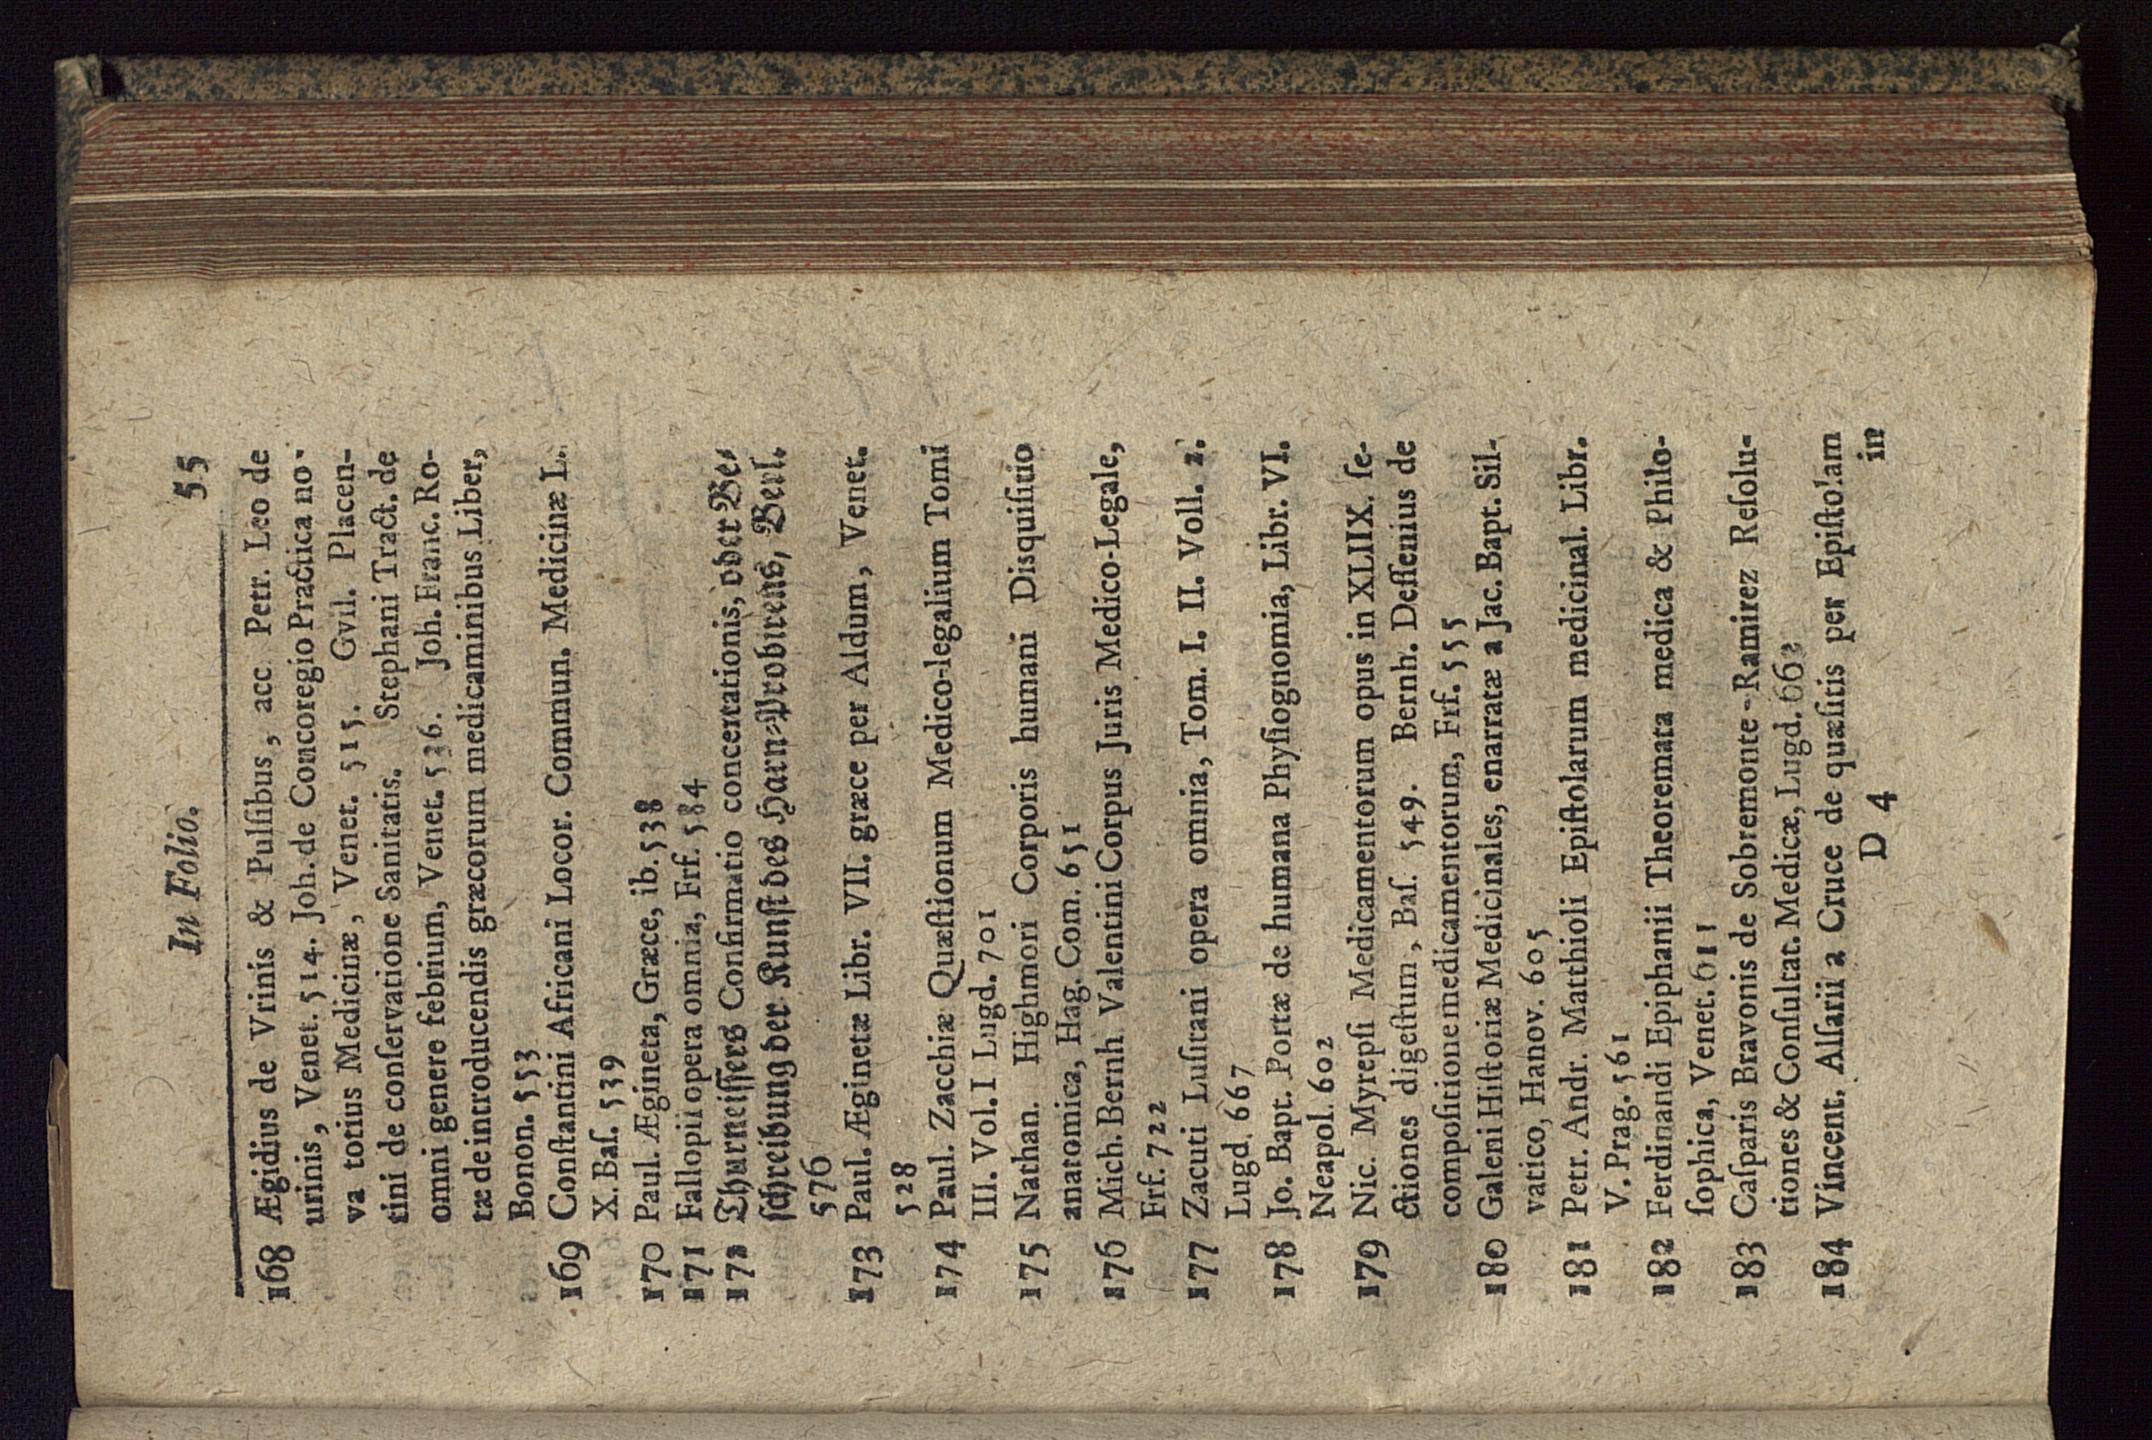 In Folio. 55
168 Ægidius de Vrinis & Pulſibus, acc Petr. Leo de
urinis, Venet. 514. Joh. de Concoregio Practica no-
va totius Medicinæ, Venet. 515. Gvil. Placen-
tini de conſervatione Sanitatis. Stephani Tract. de
omni genere febrium, Venet. 536. Joh. Franc. Ro-
tæ de introducendis græcorum medicaminibus Liber,
Bonon. 553
169 Conſtantini Africani Locor. Commun. Medicinæ L.
X. Baſ. 539
170 Paul. Ægineta, Græce, ib. 538
171 Fallopii opera omnia, Frf. 584
172 Thurneiſſers Confirmatio concertationis, oder Be-
ſchreibung der Kunſt des Harn-Probirens, Berl.
576
173 Paul. Æginetæ Libr. VII. græce per Aldum, Venet.
528
174 Paul. Zacchiæ Quæſtionum Medico-legalium Tomi
III. Vol. I Lugd. 701
175 Nathan. Highmori Corporis humani Disquiſitio
anatomica, Hag. Com. 651
176 Mich. Bernh Valentini Corpus Juris Medico-Legale,
Frf. 722
177 Zacuti Luſitani opera omnia, Tom. I. II. Voll. 2.
Lugd. 667
178 Jo. Bapt. Portæ de humana Phyſiognomia, Libr. VI.
Neapol. 602
179 Nic. Myrepſi Medicamentorum opus in XLIIX. ſe-
ctiones digeſtum, Baſ. 549. Bernh. Deſſenius de
compoſitione medicamentorum, Frf. 555
180 Galeni Hiſtoriæ Medicinales, enarratæ a Jac. Bapt. Sil-
vatico, Hanov. 605
181 Petr. Andr. Matthioli Epiſtolarum medicinal. Libr.
V. Prag. 561
182 Ferdinandi Epiphanii Theoremata medica & Philo-
ſophica, Venet. 611
183 Caſparis Bravonis de Sobremonte-Ramirez Reſolu-
tiones & Conſultat. Medicæ, Lugd. 662
184 Vincent. Alſarii a Cruce de quæſitis per Epiſtolam
D 4 in